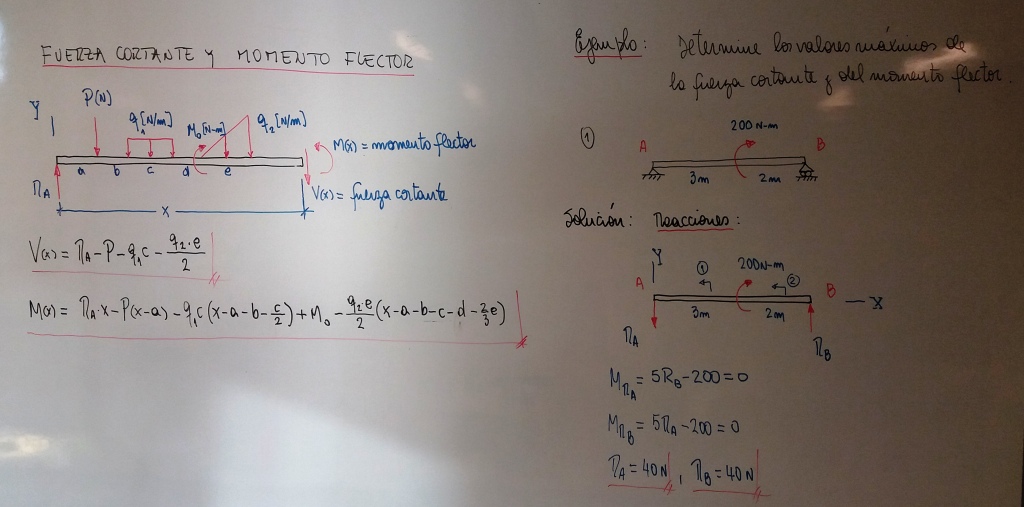 FUERZA CORTANTE Y MOMENTO FLECTOR
Y
P(N)
q1[N/m]
M0[N-m]
q2[N/m]
M(x) = momento flector
a b c d e
RA
V(x) = fuerza cortante
x
V(x) = RA - P - q1c - q2·e/2
M(x) = RA·x - P(x-a) - q1c(x-a-b-c/2) + M0 - q2·e/2(x-a-b-c-d-2/3e)
Ejemplo: Determine los valores máximos de
la fuerza cortante y del momento flector.
1
200 N-m
A B
3m 2m
Solución: Reacciones:
Y
1 200N-m 2
A B X
3m 2m
RA RB
MRA = 5RB - 200 = 0
MRB = 5RA - 200 = 0
RA = 40N, RB = 40N